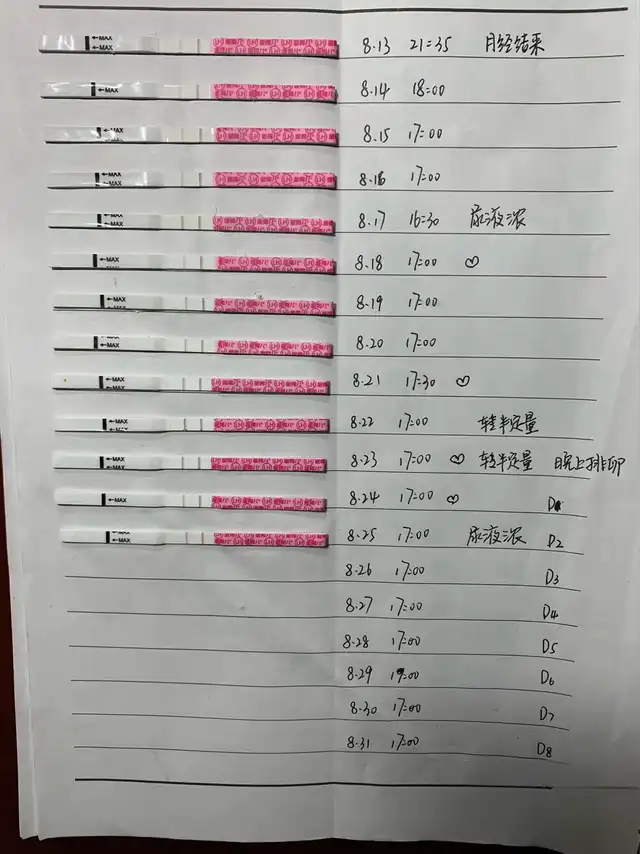 ←MAX ←MAX 8.13 21:35 月经结束
←MAX 8.14 18:00
←MAX ←MAX 8.15 17:00
←MAX ←MAX 8.16 17:00
←MAX ←MAX 8.17 16:30 尿液浓
←MAX 8.18 17:00 ♡
←MAX ←MAX 8.19 17:00
←MAX 8.20 17:00
←MAX ←MAX 8.21 17:30 ♡
←MAX 8.22 17:00 转半定量
←MAX ←MAX 8.23 17:00 ♡ 转半定量 晚上排卵
←MAX 8.24 17:00 ♡
←MAX 8.25 17:00 尿液浓 D2
8.26 17:00 D3
8.27 17:00 D4
8.28 17:00 D5
8.29 17:00 D6
8.30 17:00 D7
8.31 17:00 D8